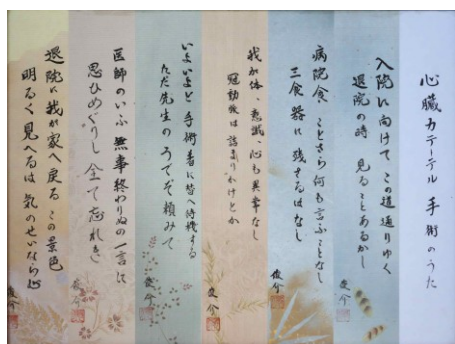 心臓カテーテル 手術のうた
入院に向けて この道通りゆく
退院の時 見ることあるかし
病院食 ことさら何も言ふことなし
三食 器に残すはなし
俊介
我が体、意識、心も異常なし
冠動脈は詰まりかけとか
俊介
いよいよと 手術着に替へ待機する
ただ先生のうでぞ頼みて
俊介
医師のいふ 無事終わりぬの一言に
思ひめぐりし 全て忘れき
俊介
退院に我が家へ戻る この景色
明るく見へるは 気のせいならむ
俊介